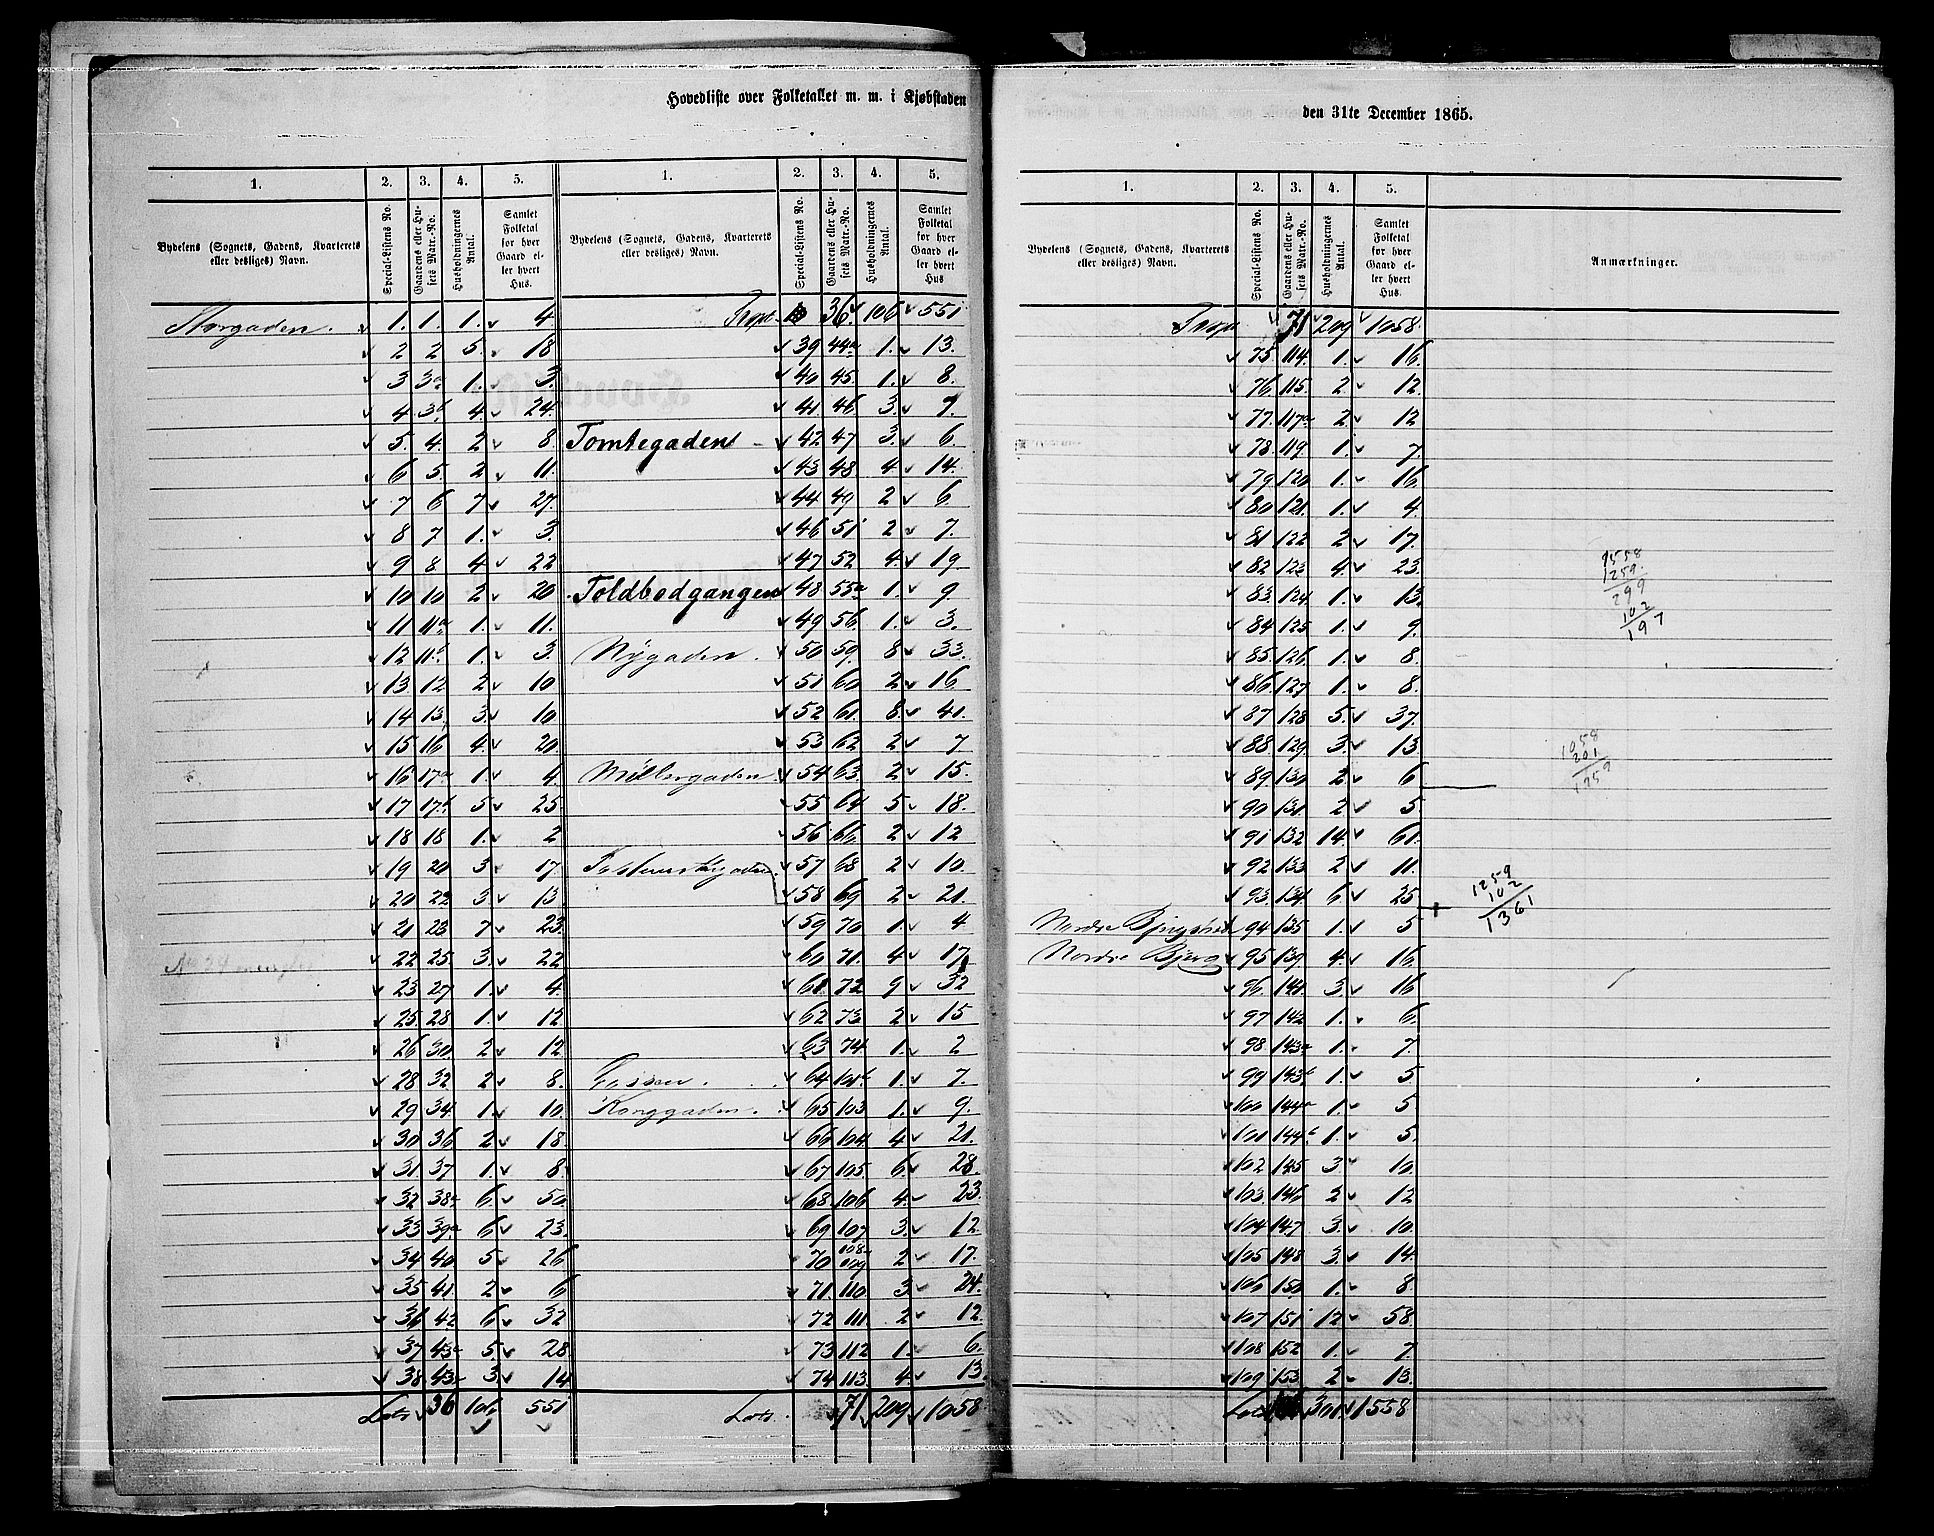 Hovedliste over Folketallet m. m. i Kjøbstaden
1. 2. 3. 4. 5. 1. 2. 3. 4. 5.
Bydelens (Sognets, Gadens, Kvarterets eller desliges) Navn. Special-Listens No. Gaardens eller Husets Matr.-No. Husholdningernes Antal. Samlet Folketal for hver Gaard eller hvert Hus. Bydelens (Sognets, Gadens, Kvarterets eller desliges) Navn. Special-Listens No. Gaardens eller Husets Matr.-No. Husholdningernes Antal. Samlet Folketal for hver Gaard eller hvert Hus.
Storgaden. 1. 1. 1. 4 Trspt. 36. 106 551
2 2 5. 18 39 44a 1. 13.
3 3a 1. 3. 40 45. 1. 8.
4 3b 4. 24. 41 46. 3. 7.
5. 4. 2 8 Tomtegaden 42 47 3. 6.
6 5. 2 11. 43 48 4. 14.
7 6 7 27. 44 49 2 6.
8 7 1. 3. 46 51 2 7.
9 8 4 22 47 52 4. 19
10 10 2 20 Toldbodgangen 48 55a 1. 9
11 11a 1. 11. 49 56 1. 3.
12 11b 1. 3. Nygaden. 50 59. 8 33.
13 12 2 10 51 60 2 16
14 13 3 10 52 61. 8. 41.
15 16 4. 20 53 62 2 7
16 17a 1. 4. Møllergaden. 54 63. 2 15.
17 17b 5 25. 55 64 5 18.
18 18 1. 2 56 66 2 12
19 20 3 17. 57 68 2 10.
20 22 3 13 58 69 2 21.
21 23 7 23. 59 70 1. 4
22 25. 3. 22 60 71. 4 17
23 27 1. 4. 61. 72 9 32
25. 28 1. 12 62 73 2 15
26 30. 2 12. 63 74 1. 2
28 32 2 8. Gassen. 64 101b 1. 7.
29 34 1. 10. Konggaden. 65 103 1. 9.
30 36 2 18. 66 104 4 21.
31 37 1. 8. 67 105. 6. 28.
32 38a 6. 50. 68. 106 4. 23.
33 39a 6 23. 69 107 3. 12.
34 40 5 26 70 108 109 2 17.
35 41. 2 6 71. 110 3 24.
36 42 6 32 72 111 2 12.
37 43a 5. 28 73 112 1. 6.
38 43b 3 14 74 113. 4 13.
Lats 36 106 551 Lats. 71 209 1058
den 31te December 1865.
1. 2. 3. 4. 5.
Bydelens (Sognets, Gadens, Kvarterets eller desliges) Navn. Special-Listens No. Gaardens eller Husets Matr.-No. Husholdningernes Antal. Samlet Folketal for hver Gaard eller hvert Hus. Anmærkninger.
Trspt 71 209 1058.
75. 114 1. 16.
76. 115. 2 12.
77. 117a 2. 12
78. 119 1. 7.
79. 120 1. 16.
80 121. 1. 4.
81 122 2 17.
82 123 4. 23.
83. 124 1. 13.
84 125 1. 9.
85. 126. 1. 8.
86. 127 1. 8.
87 128 5. 37.
88. 129. 3. 13.
89. 130 2 6
90 131 2 5
91 132 14. 61.
92 133 2 11.
93. 134 6 25
94 135 1. 5
Nordre Bjerg 95 139 4. 16.
96. 141. 3. 16
97 142 1. 6.
98 143a 1. 7.
99 143b 1. 5
100 144a 1. 5
101 144b 1. 5.
102 145 3 10
103. 146 2 12
104 147 3. 10
105 148 3. 14.
106 150 1. 8.
107 151 12 58.
108 152 1. 7.
109 153 2 13.
Lats 301 1558
1558
1259.
299
102
197
1058
201
1259
1259
102
1361